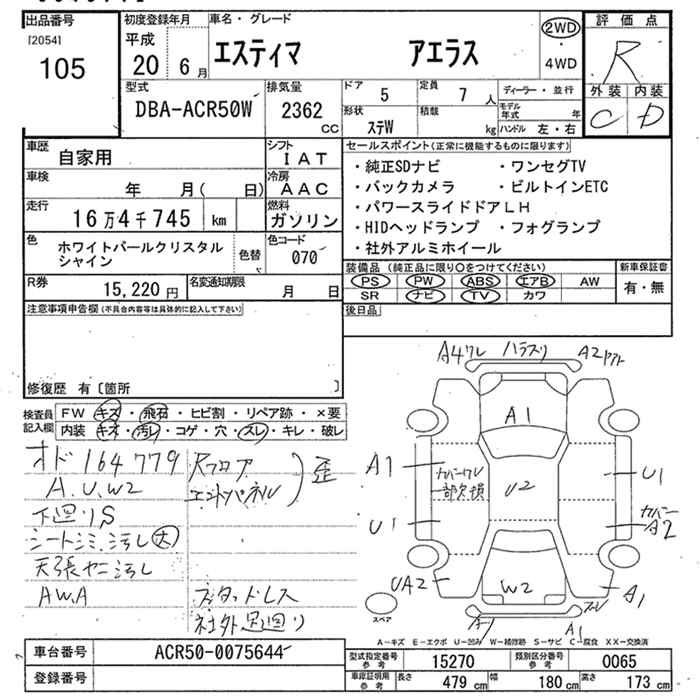 出品番号
[2054]
105
初度登録年月
平成
20 6月
車名・グレード
エスティマ アエラス
2WD
・
4WD
評価点
R
外装 内装
C D
型式
DBA-ACR50W
排気量
2362
CC
ドア 5
定員 7人
形状 ステW
積載 kg
ディーラー・並行
モデル年式 年
ハンドル 左・右
車歴
自家用
シフト
IAT
車検
年 月( 日)
冷房
AAC
走行
16万4千745 km
燃料
ガソリン
色
ホワイトパールクリスタル
シャイン
色替
色コード
070
R券
15,220円
名変通知期限
月 日
セールスポイント(正常に機能するものに限ります)
・純正SDナビ ・ワンセグTV
・バックカメラ ・ビルトインETC
・パワースライドドアLH
・HIDヘッドランプ ・フォグランプ
・社外アルミホイール
装備品(純正品に限り○をつけてください)
PS PW ABS エアB AW
SR ナビ TV カワ
新車保証書
有・無
後日品
注意事項申告欄(不具合内容等は具体的に記入して下さい)
修復歴 有〔箇所 〕
検査員
記入欄
FW キズ・飛石・ヒビ割・リペア跡・×要
内装 キズ・汚レ・コゲ・穴・スレ・キレ・破レ
オド 164779
A.U.W2
下廻りS
シートシミ、汚レ大
天張ヤニ汚レ
AWA
Rフロア
エンドパネル
歪
スタッドレス
社外足廻り
A4ワレ ハラスリ A2
A1
A1
カバーワレ
一部欠損
U2
U1
U1
カバー
A2
UA2
W2
A1
A1
A1
スペア
A−キズ E−エクボ U−凹み W−補修跡 S−サビ C−腐食 XX−交換済
車台番号
ACR50-0075644
登録番号
型式指定番号
参考
15270
類別区分番号
参考
0065
車庫証明用
参考
長さ 479cm 幅 180cm 高さ 173cm